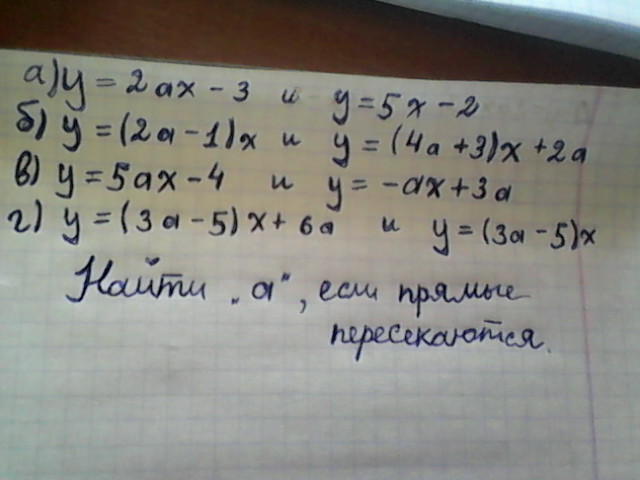 а) y = 2ax - 3 и y = 5x - 2
б) y = (2a - 1)x и y = (4a + 3)x + 2a
в) y = 5ax - 4 и y = -ax + 3a
г) y = (3a - 5)x + 6a и y = (3a - 5)x
Найти „a", если прямые
пересекаются.